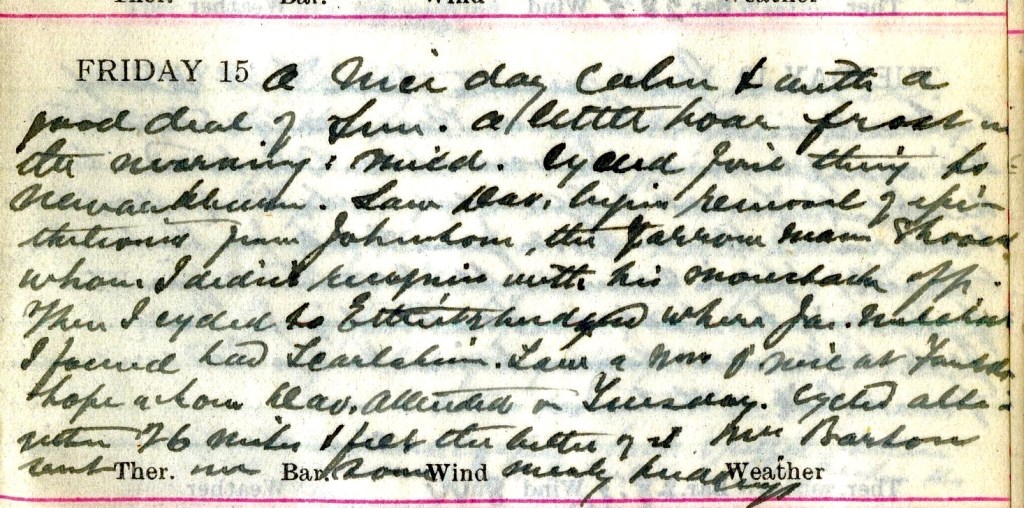 Ther. Bar. Wind Weather
FRIDAY 15 A nice day Calm & with a
good deal of Sun. A little hoar frost in
the morning: mild. Cycled first thing to
Newark. Saw Dav. begin removal of epi-
thelioma from Johnstone, the Yarrow man
whom I didn't recognise with his moustache off.
Then I cycled to Ettrickbridgend where Jas. Mitchell
I found had Scarlatina. Saw a Mrs at
hope whom Dav. attended on Tuesday. Cycled alto-
gether 26 miles & felt the better of it Mrs Barton
sent me some mealy puddings
Ther. Bar. Wind Weather